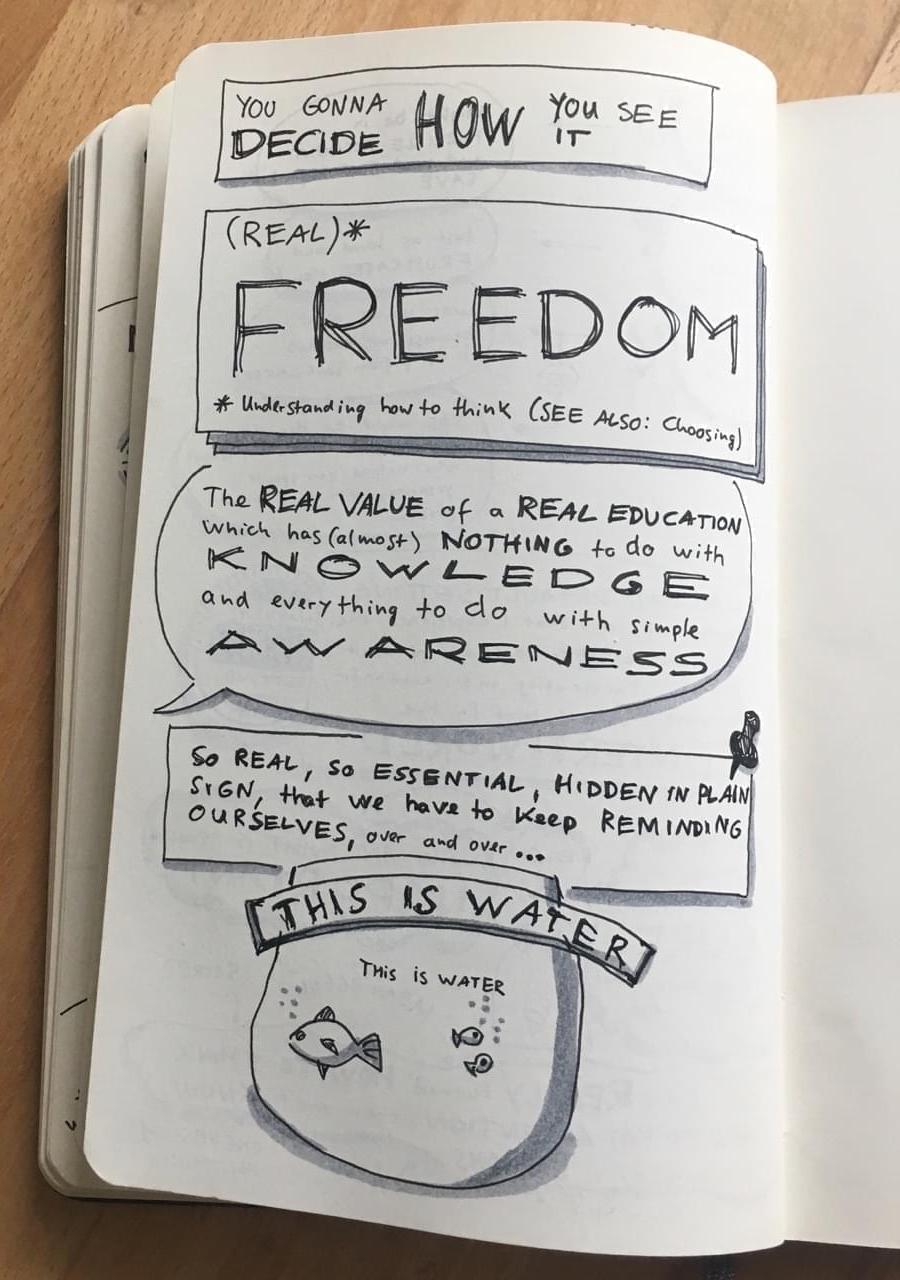 YOU GONNA
DECIDE HOW YOU SEE IT
(REAL)*
FREEDOM
* Understanding how to think (SEE ALSO: Choosing)
The REAL VALUE of a REAL EDUCATION
which has (almost) NOTHING to do with
KNOWLEDGE
and everything to do with simple
AWARENESS
So REAL, so ESSENTIAL, HIDDEN IN PLAIN
SIGN, that we have to keep REMINDING
OURSELVES, over and over ...
THIS IS WATER
THIS is WATER